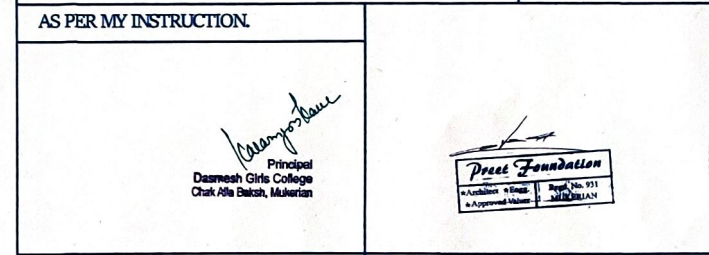 AS PER MY INSTRUCTION.
Principal
Dasmesh Girls College
Chak Alla Baksh, Mukerian
Preet Foundation
*Architect *Engg.
Regd. No. 931
*Approved Valuer
MUKERIAN